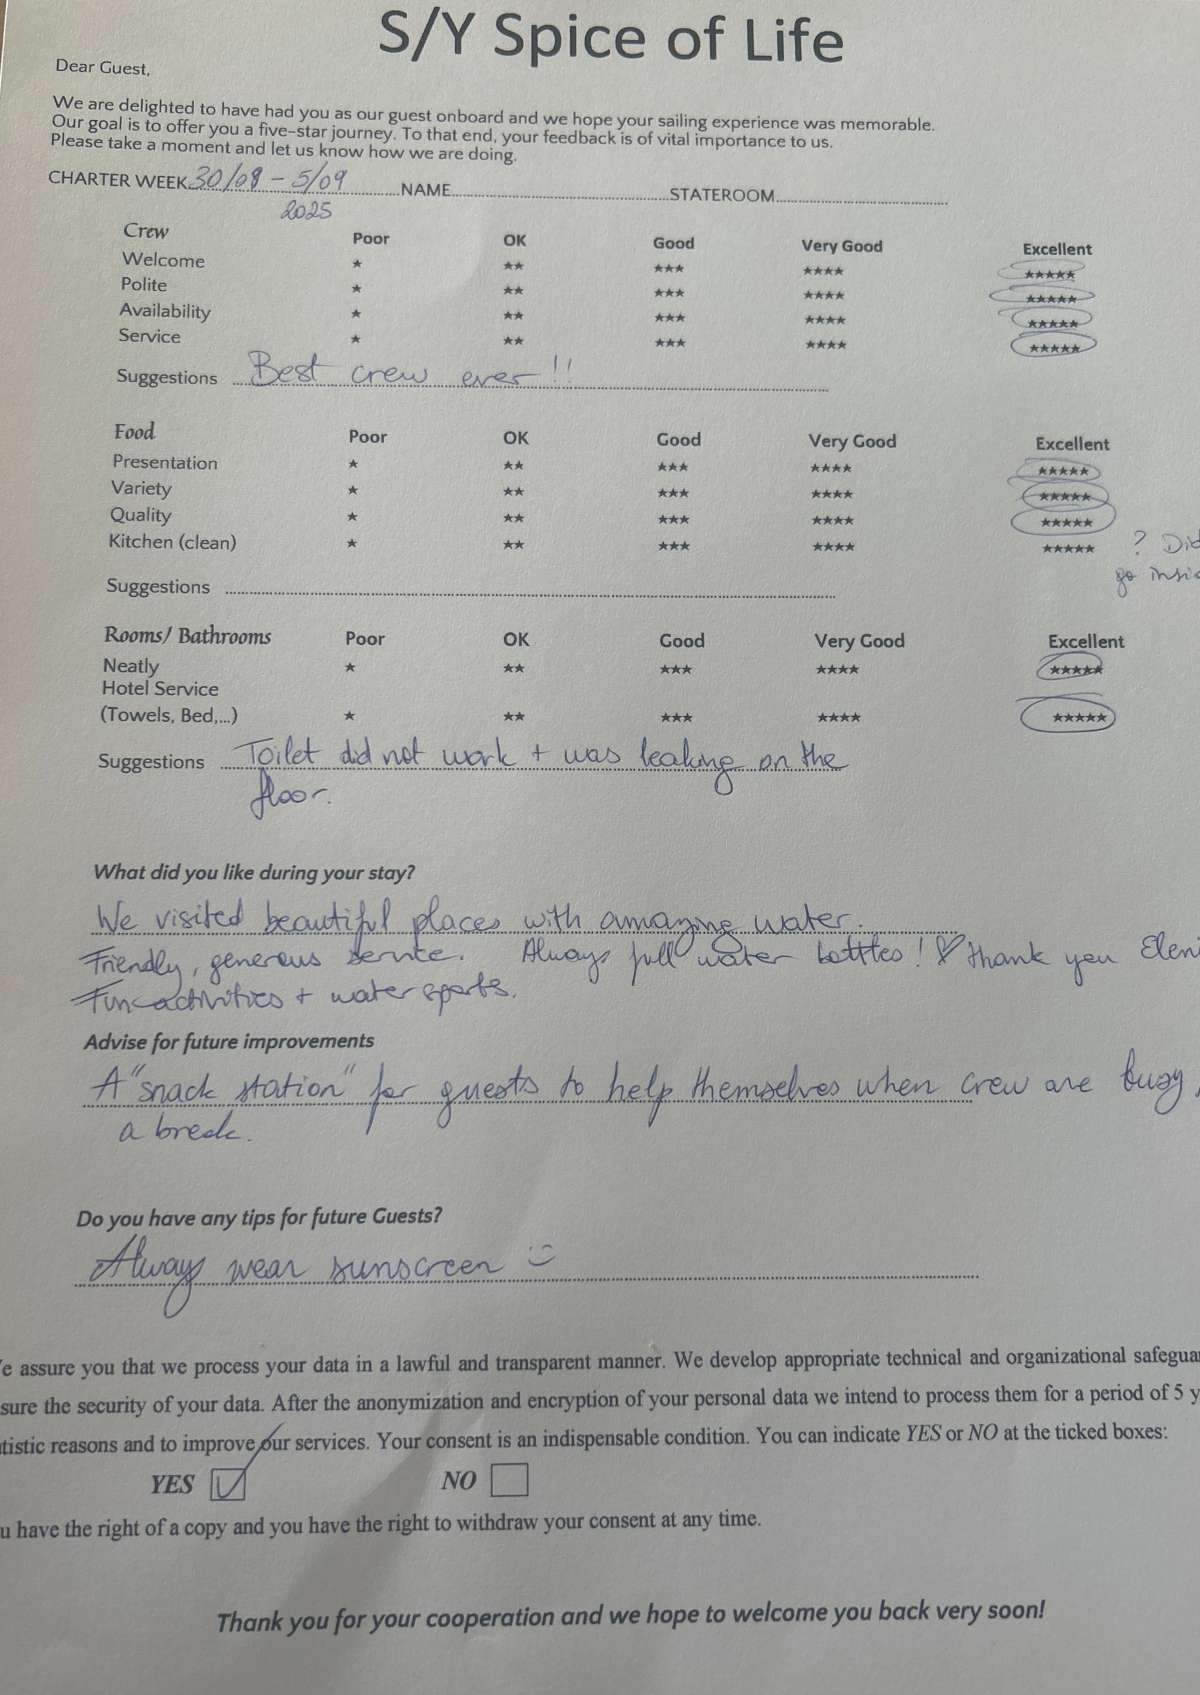 S/Y Spice of Life
Dear Guest,
We are delighted to have had you as our guest onboard and we hope your sailing experience was memorable.
Our goal is to offer you a five-star journey. To that end, your feedback is of vital importance to us.
Please take a moment and let us know how we are doing.
CHARTER WEEK 30/08 - 5/09 NAME STATEROOM
2025
Crew Poor OK Good Very Good Excellent
Welcome ★ ★★ ★★★ ★★★★ ★★★★★
Polite ★ ★★ ★★★ ★★★★ ★★★★★
Availability ★ ★★ ★★★ ★★★★ ★★★★★
Service ★ ★★ ★★★ ★★★★ ★★★★★
Suggestions Best crew ever!!
Food Poor OK Good Very Good Excellent
Presentation ★ ★★ ★★★ ★★★★ ★★★★★
Variety ★ ★★ ★★★ ★★★★ ★★★★★
Quality ★ ★★ ★★★ ★★★★ ★★★★★
Kitchen (clean) ★ ★★ ★★★ ★★★★ ★★★★★ ? Did
go insid
Suggestions
Rooms/ Bathrooms Poor OK Good Very Good Excellent
Neatly ★ ★★ ★★★ ★★★★ ★★★★★
Hotel Service
(Towels, Bed,...) ★ ★★ ★★★ ★★★★ ★★★★★
Suggestions Toilet did not work + was leaking on the
floor.
What did you like during your stay?
We visited beautiful places with amazing water.
Friendly, generous service. Always full water bottles! ♡ Thank you Eleni
Fun activities + water sports.
Advise for future improvements
A "snack station" for guests to help themselves when crew are busy,
a break.
Do you have any tips for future Guests?
Always wear sunscreen :)
e assure you that we process your data in a lawful and transparent manner. We develop appropriate technical and organizational safeguar
sure the security of your data. After the anonymization and encryption of your personal data we intend to process them for a period of 5 y
tistic reasons and to improve our services. Your consent is an indispensable condition. You can indicate YES or NO at the ticked boxes:
YES ☑ NO ☐
u have the right of a copy and you have the right to withdraw your consent at any time.
Thank you for your cooperation and we hope to welcome you back very soon!